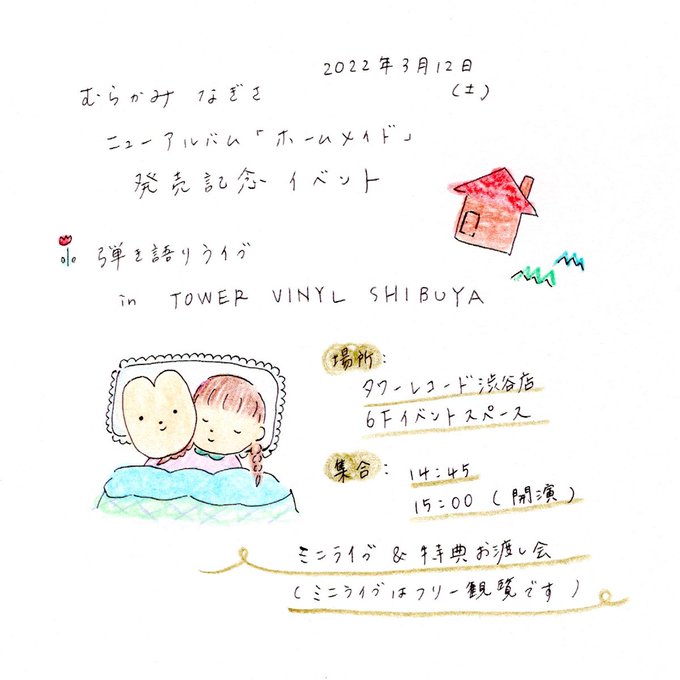 2022年3月12日
(土)
むらかみ なぎさ
ニューアルバム「ホームメイド」
発売記念イベント
弾き語りライブ
in TOWER VINYL SHIBUYA
場所:
タワーレコード渋谷店
6Fイベントスペース
集合: 14:45
15:00 (開演)
ミニライブ & 特典お渡し会
(ミニライブはフリー観覧です)